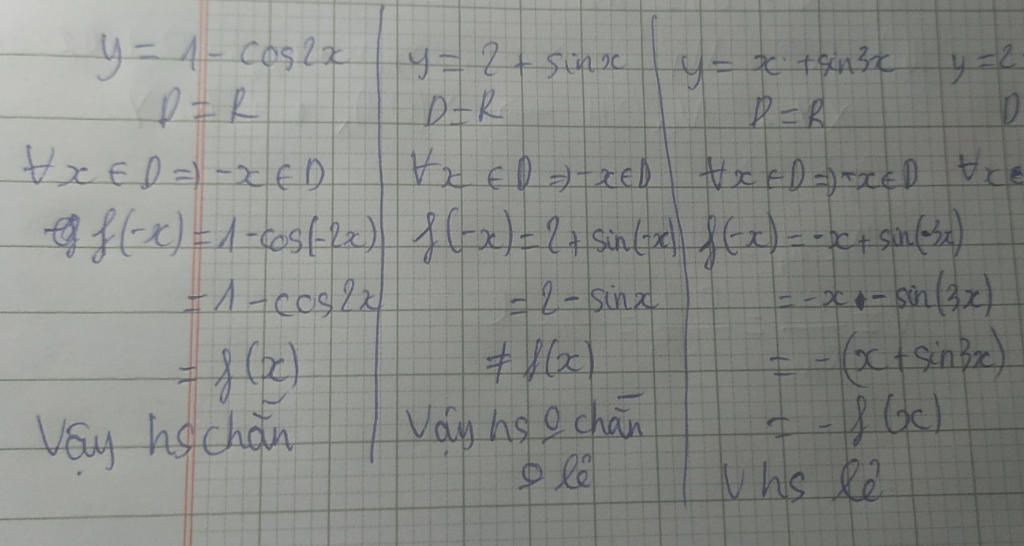 y = 1 - cos2x
D = R
∀x ∈ D ⇒ -x ∈ D
f(-x) = 1 - cos(-2x)
= 1 - cos2x
= f(x)
Vậy hs chẵn
y = 2 + sinx
D = R
∀x ∈ D ⇒ -x ∈ D
f(-x) = 2 + sin(-x)
= 2 - sinx
≠ f(x)
Vậy hs o chẵn
o lẻ
y = x + sin3x
D = R
∀x ∈ D ⇒ -x ∈ D
f(-x) = -x + sin(-3x)
= -x - sin(3x)
= -(x + sin3x)
= -f(x)
V hs lẻ
y = 2
D
∀x ∈